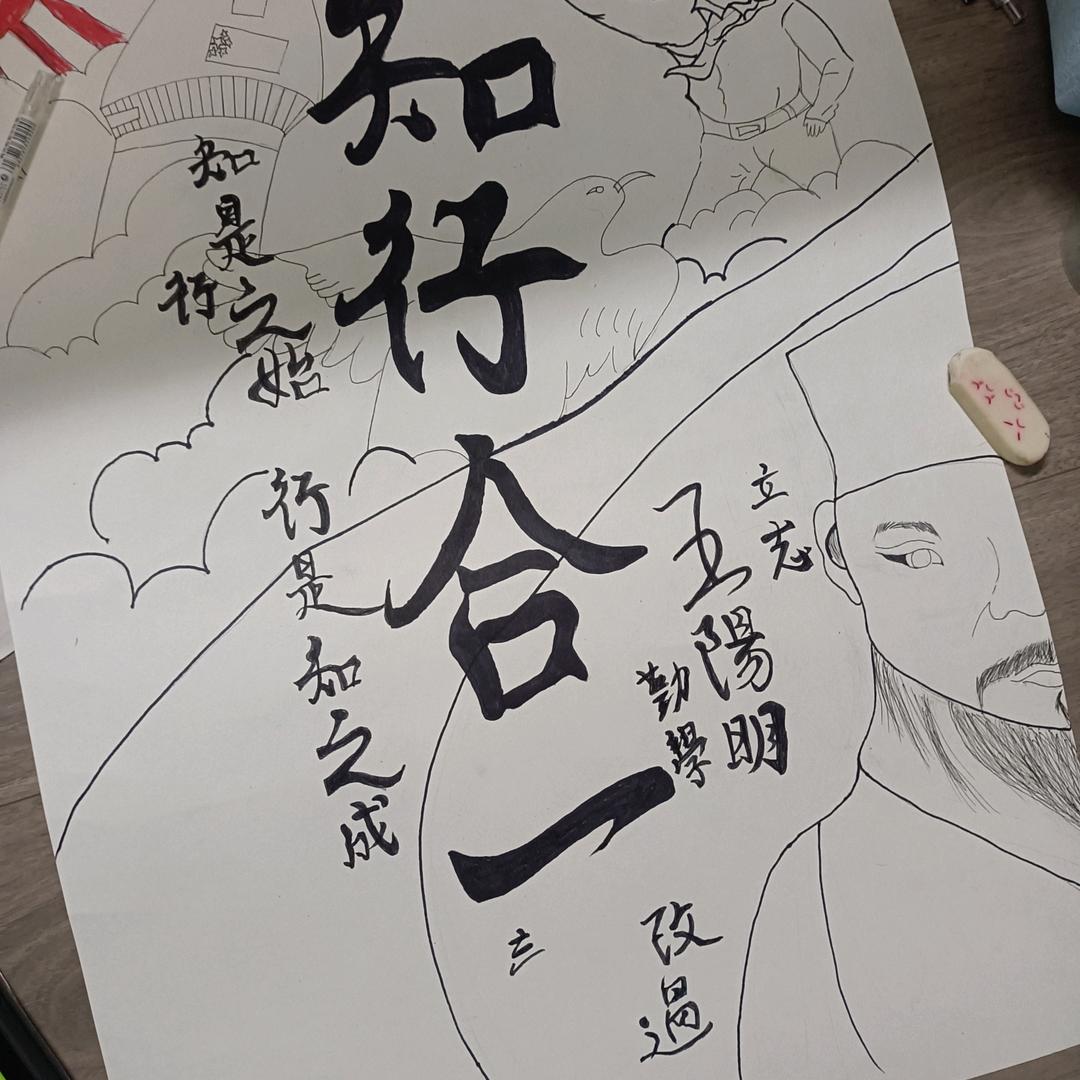 知行合一
知是行之始
行是知之成
王陽明
立志
勤學
改過